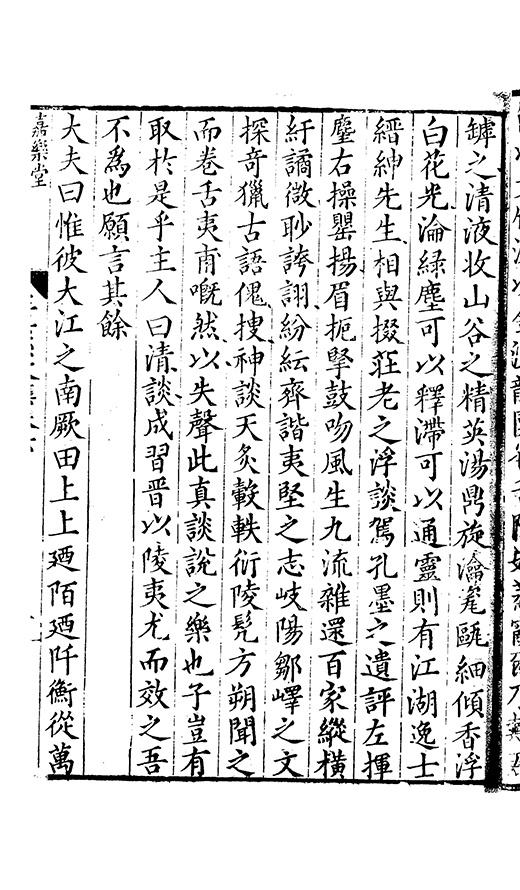 罅之清液收山谷之精英湯鼎旋瀹瓷甌細傾香浮
白花光淪綠塵可以釋滯可以通靈則有江湖逸士
縉紳先生相與掇莊老之浮談駕孔墨之遺評左揮
麈右操觶揚眉扼掔鼓吻風生九流雜還百家縱橫
紆譎微眇誇詡紛紜齊諧夷堅之志岐陽鄒嶧之文
探奇獵古語傀搜神談天炙轂軼衍陵髡方朔聞之
而卷舌夷甫嘅然以失聲此真談說之樂也子豈有
取於是乎主人曰清談成習晉以陵夷尤而效之吾
不為也願言其餘
大夫曰惟彼大江之南厥田上上廼陌廼阡衡從萬
嘉樂堂